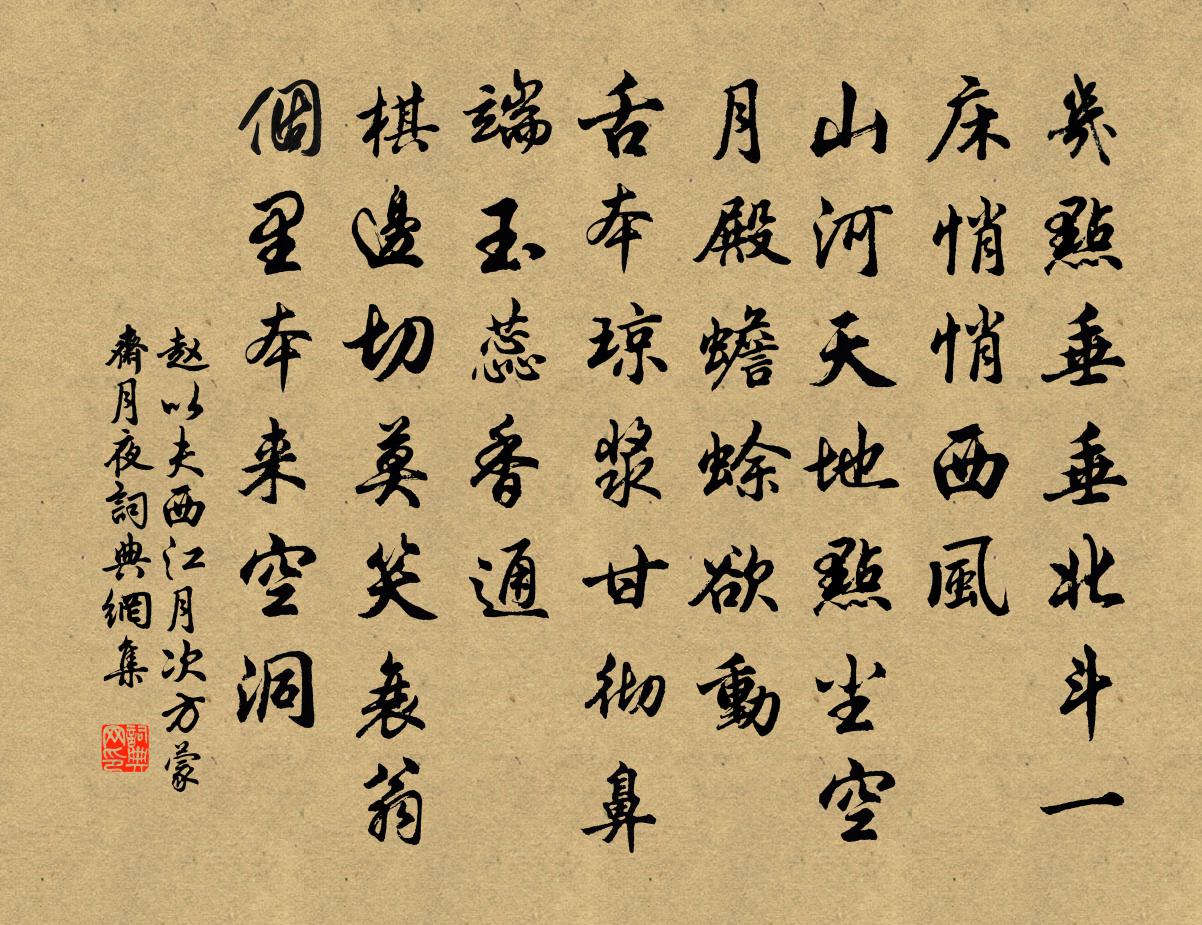 幾點垂垂北斗一
床悄悄西風
山河天地點尘空
月殿蟾蜍欲動
舌本琼漿甘彻鼻
端玉蕊香通
棋邊切莫笑衰翁
個里本来空洞
赵以夫西江月次方蒙
齋月夜詞典網集
詞典
网印